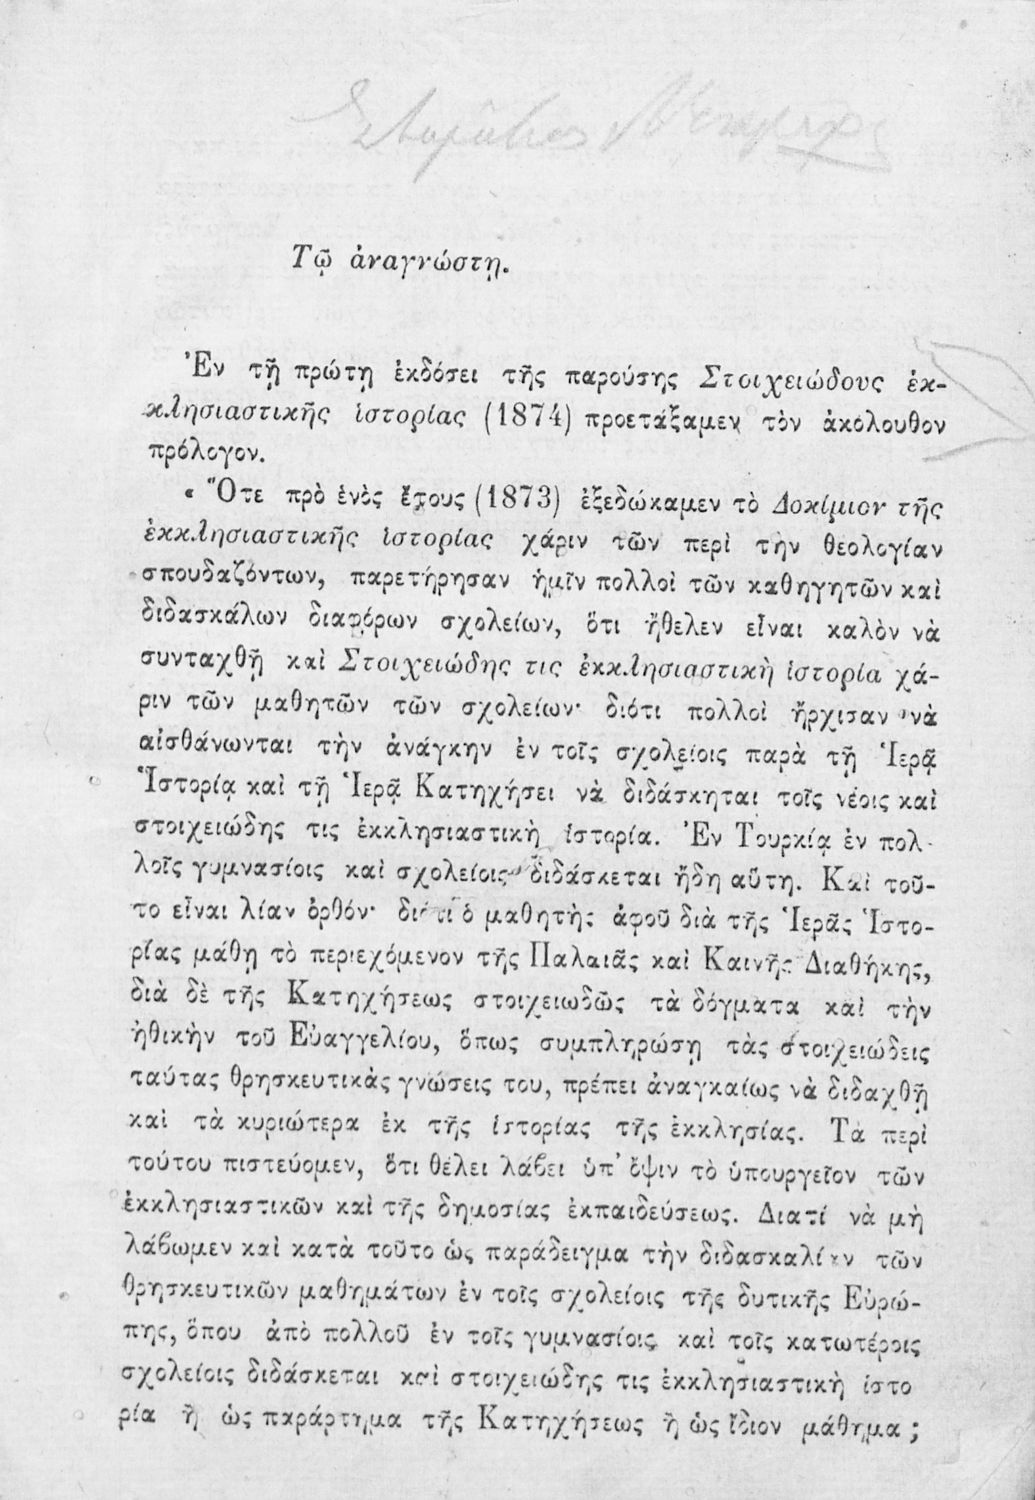 Τῷ ἀναγνώστῃ.
Ἐν τῇ πρώτῃ ἐκδόσει τῆς παρούσης Στοιχειώδους ἐκ-
κλησιαστικῆς ἱστορίας (1874) προετάξαμεν τὸν ἀκόλουθον
πρόλογον.
« Ὅτε πρὸ ἑνὸς ἔτους (1873) ἐξεδώκαμεν τὸ Δοκίμιον τῆς
ἐκκλησιαστικῆς ἱστορίας χάριν τῶν περὶ τὴν θεολογίαν
σπουδαζόντων, παρετήρησαν ἡμῖν πολλοὶ τῶν καθηγητῶν καὶ
διδασκάλων διαφόρων σχολείων, ὅτι ἤθελεν εἶναι καλὸν νὰ
συνταχθῇ καὶ Στοιχειώδης τις ἐκκλησιαστικὴ ἱστορία χά-
ριν τῶν μαθητῶν τῶν σχολείων· διότι πολλοὶ ἤρχισαν νὰ
αἰσθάνωνται τὴν ἀνάγκην ἐν τοῖς σχολείοις παρὰ τῇ Ἱερᾷ
Ἱστορίᾳ καὶ τῇ Ἱερᾷ Κατηχήσει νὰ διδάσκηται τοῖς νέοις καὶ
στοιχειώδης τις ἐκκλησιαστικὴ ἱστορία. Ἐν Τουρκίᾳ ἐν πολ-
λοῖς γυμνασίοις καὶ σχολείοις διδάσκεται ἤδη αὕτη. Καὶ τοῦ-
το εἶναι λίαν ὀρθόν· διότι ὁ μαθητὴς ἀφοῦ διὰ τῆς Ἱερᾶς Ἱστο-
ρίας μάθῃ τὸ περιεχόμενον τῆς Παλαιᾶς καὶ Καινῆς Διαθήκης,
διὰ δὲ τῆς Κατηχήσεως στοιχειωδῶς τὰ δόγματα καὶ τὴν
ἠθικὴν τοῦ Εὐαγγελίου, ὅπως συμπληρώσῃ τὰς στοιχειώδεις
ταύτας θρησκευτικὰς γνώσεις του, πρέπει ἀναγκαίως νὰ διδαχθῇ
καὶ τὰ κυριώτερα ἐκ τῆς ἱστορίας τῆς ἐκκλησίας. Τὰ περὶ
τούτου πιστεύομεν, ὅτι θέλει λάβει ὑπ' ὄψιν τὸ ὑπουργεῖον τῶν
ἐκκλησιαστικῶν καὶ τῆς δημοσίας ἐκπαιδεύσεως. Διατί νὰ μὴ
λάβωμεν καὶ κατὰ τοῦτο ὡς παράδειγμα τὴν διδασκαλίαν τῶν
θρησκευτικῶν μαθημάτων ἐν τοῖς σχολείοις τῆς δυτικῆς Εὐρώ-
πης, ὅπου ἀπὸ πολλοῦ ἐν τοῖς γυμνασίοις καὶ τοῖς κατωτέροις
σχολείοις διδάσκεται καὶ στοιχειώδης τις ἐκκλησιαστικὴ ἱστο
ρία ἢ ὡς παράρτημα τῆς Κατηχήσεως ἢ ὡς ἴδιον μάθημα ;